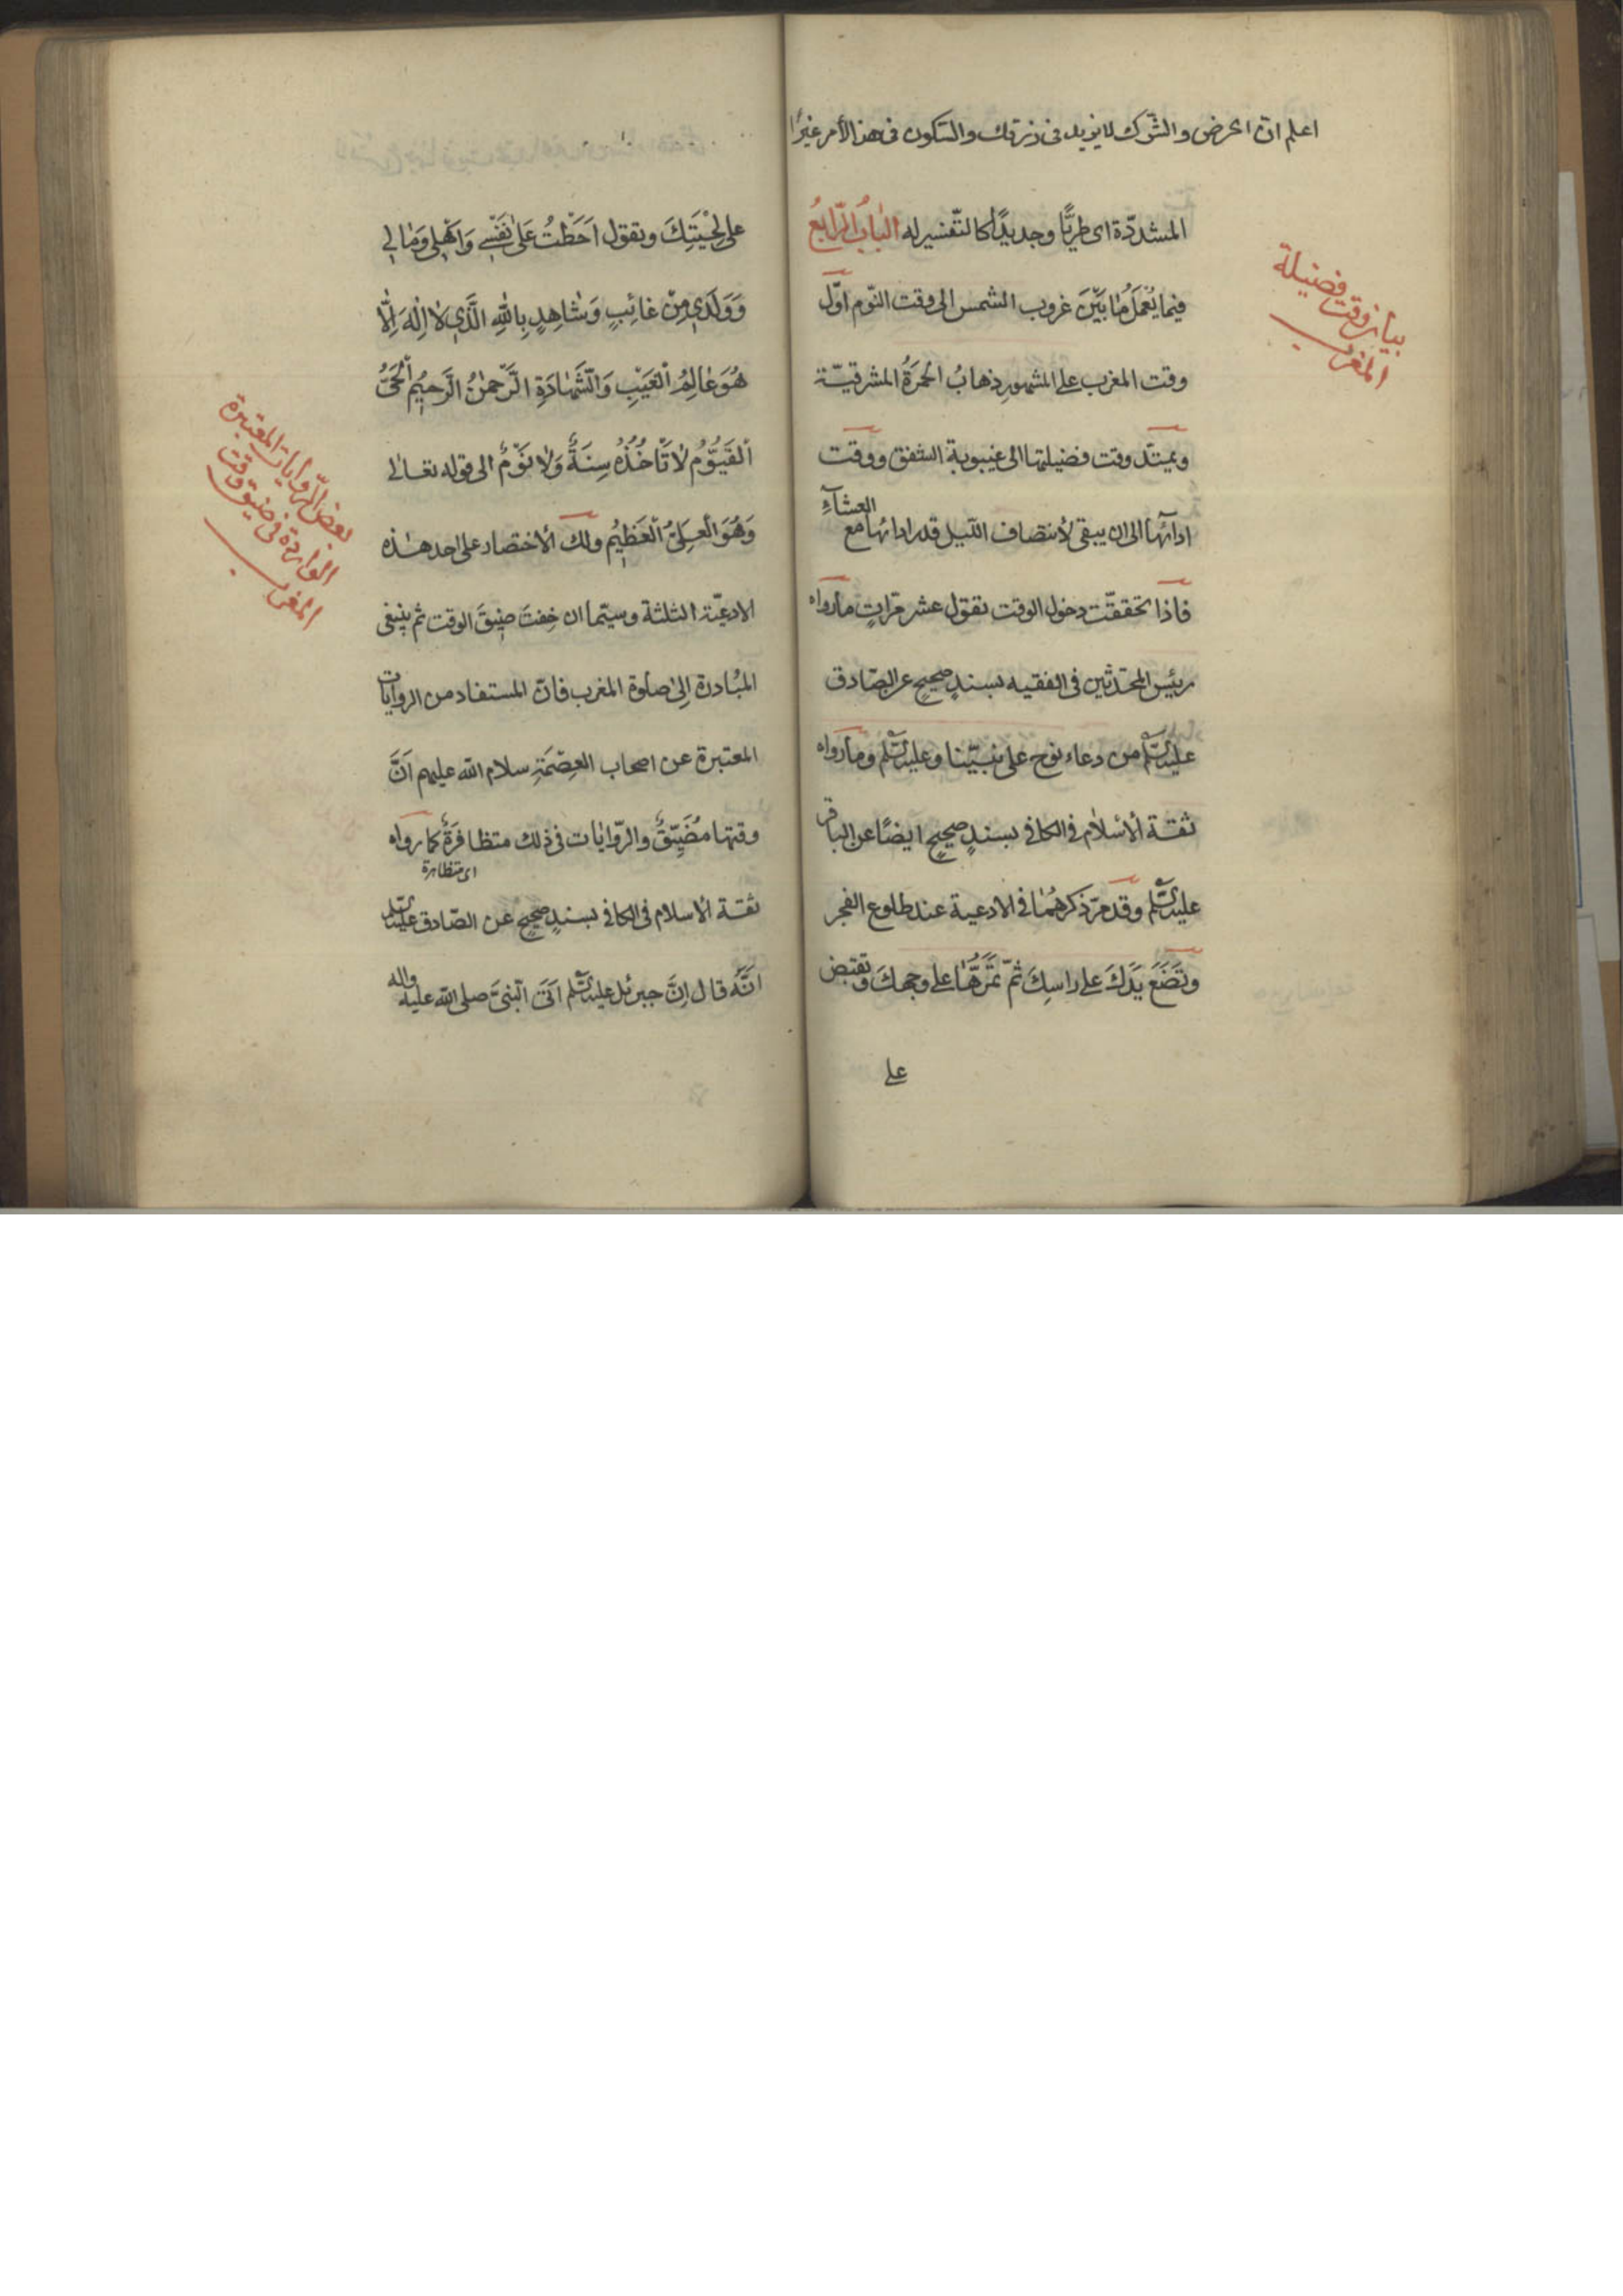 اعلم ان الحرض والترك لا يزيد فى رزقك والسكون فى هذا الأمر
المشدّدة اى طريًّا وجديدًا كالتّفسير له البابُ الرّابعُ
فيما يُعْمَلُ مٰا بَيْنَ غروب الشمس الى وقت النّوم اوّل
بيان وقت فضيلة
المغرب
وقت المغرب على المشهور ذهابُ الحمرَةُ المشرقيّة
ويمتدّ وقت فضيلتها الى غيبوبة الشفق ووقت
ادآئها الى ان يبقى لأنتصاف اللّيل قدر ادائها مع
العشآءِ
فاذا تحققّت دخول الوقت تقول عشر مرّاتٍ ما رواه
رئيس المحدّثين فى الفقيه بسندٍ صحيحٍ عن الصّادق
عليه السّلم من دعاء نوح على نبيّنا وعليه السّلم وما رواه
ثقة ألاسْلٰام فى الكافى بسندٍ صحيحٍ ايضًا عن الباقر
عليه السّلم وقد مرّ ذكرهُمٰا فى الادعية عند طلوع الفجر
وتَضَعَ يَدَكَ على راسِكَ ثمّ تمَرَّهُّا على وجهكَ وتقبض
على
على لِحْيَتِكَ وتقول اَحَطْتُ عَلىٰ نَفْسٖي وَاَهْلٖي وَمٰالٖي
وَوَلَدٖي مِنْ غٰائِبٍ وَشٰاهِدٍ بِاللّٰهِ الَّذٖي لٰا اِلٰهَ اِلّٰا
هُوَ عٰالِمُ الْغَيْبِ وَالشَّهٰادَةِ الرَّحْمٰنُ الرَّحٖيمُ الْحَيُّ
الْقَيُّوُمُ لٰا تَأخُذُهُ سِنَةٌ وَلٰا نَوْمٌ الى قوله تعٰالى
وَهُوَ الْعَلِىُّ الْعَظٖيُم ولك ألاختصار على احد هٰذه
بعض الرّوايات المعتبرة
الواردة فى ضيق وقت
المغرب
الادعيّة الثلثة وسيّما ان خِفتَ ضيقَ الوقت ثم ينبغى
المبٰادرة اِلىٰ صلوة المغرب فانّ المستفاد من الروايات
المعتبرة عن اصحاب العِصْمَةِ سلام الله عليهم اَنَّ
وقتها مُضَيِّقٌ والرّوايٰات فى ذلك متظافرَةٌ كما رواه
اى متظاهرة
ثقة ألاسلام فى الكافى بسندٍ صحيحٍ عن الصّادق عليه السّلم
انَّهُ قال اِنَّ جبرئل عليه السّلم اَتَى النبىَّ صلى الله عليه واله